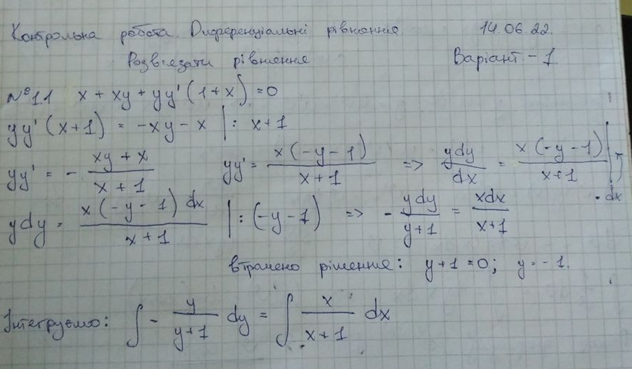 Контрольна робота. Диференціальні рівняння 14.06.22.
Розв'язати рівняння Варіант - 1.
№1.1 x + xy + yy' (1+x) = 0
yy' (x+1) = -xy - x | : x+1
yy' = - \frac{xy + x}{x + 1} yy' = \frac{x(-y-1)}{x+1} => \frac{ydy}{dx} = \frac{x(-y-1)}{x+1} | · dx
ydy = \frac{x(-y-1) dx}{x+1} | : (-y-1) => - \frac{ydy}{y+1} = \frac{xdx}{x+1}
втрачено рішення: y+1=0; y=-1.
Інтегруємо: ∫ - \frac{y}{y+1} dy = ∫ \frac{x}{x+1} dx